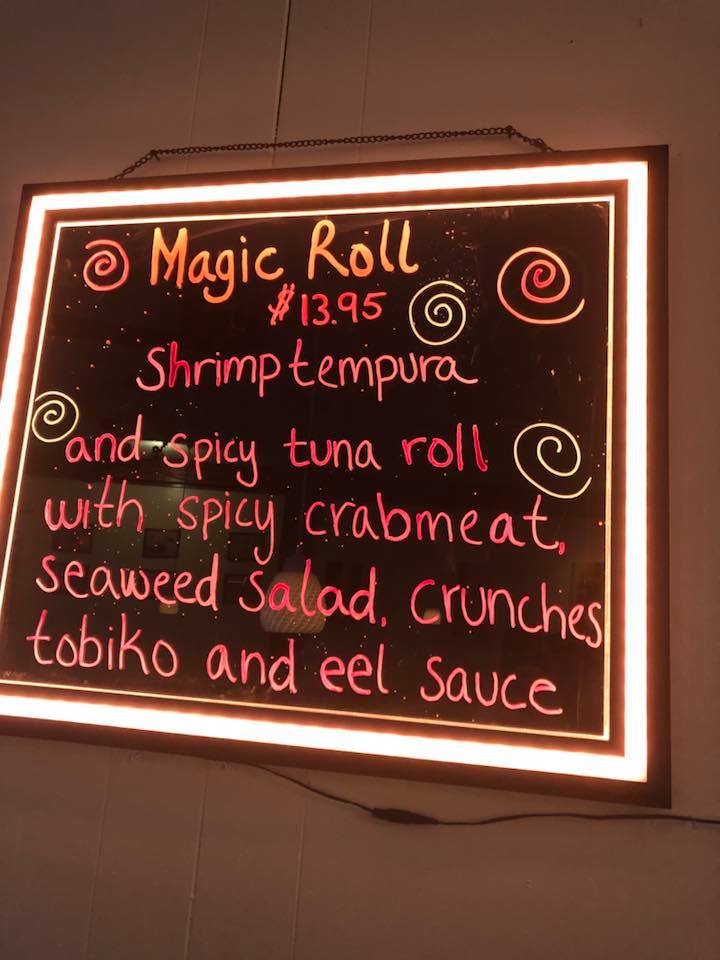 Magic Roll
$13.95
Shrimp tempura
and spicy tuna roll
with spicy crabmeat,
seaweed salad, crunches
tobiko and eel sauce